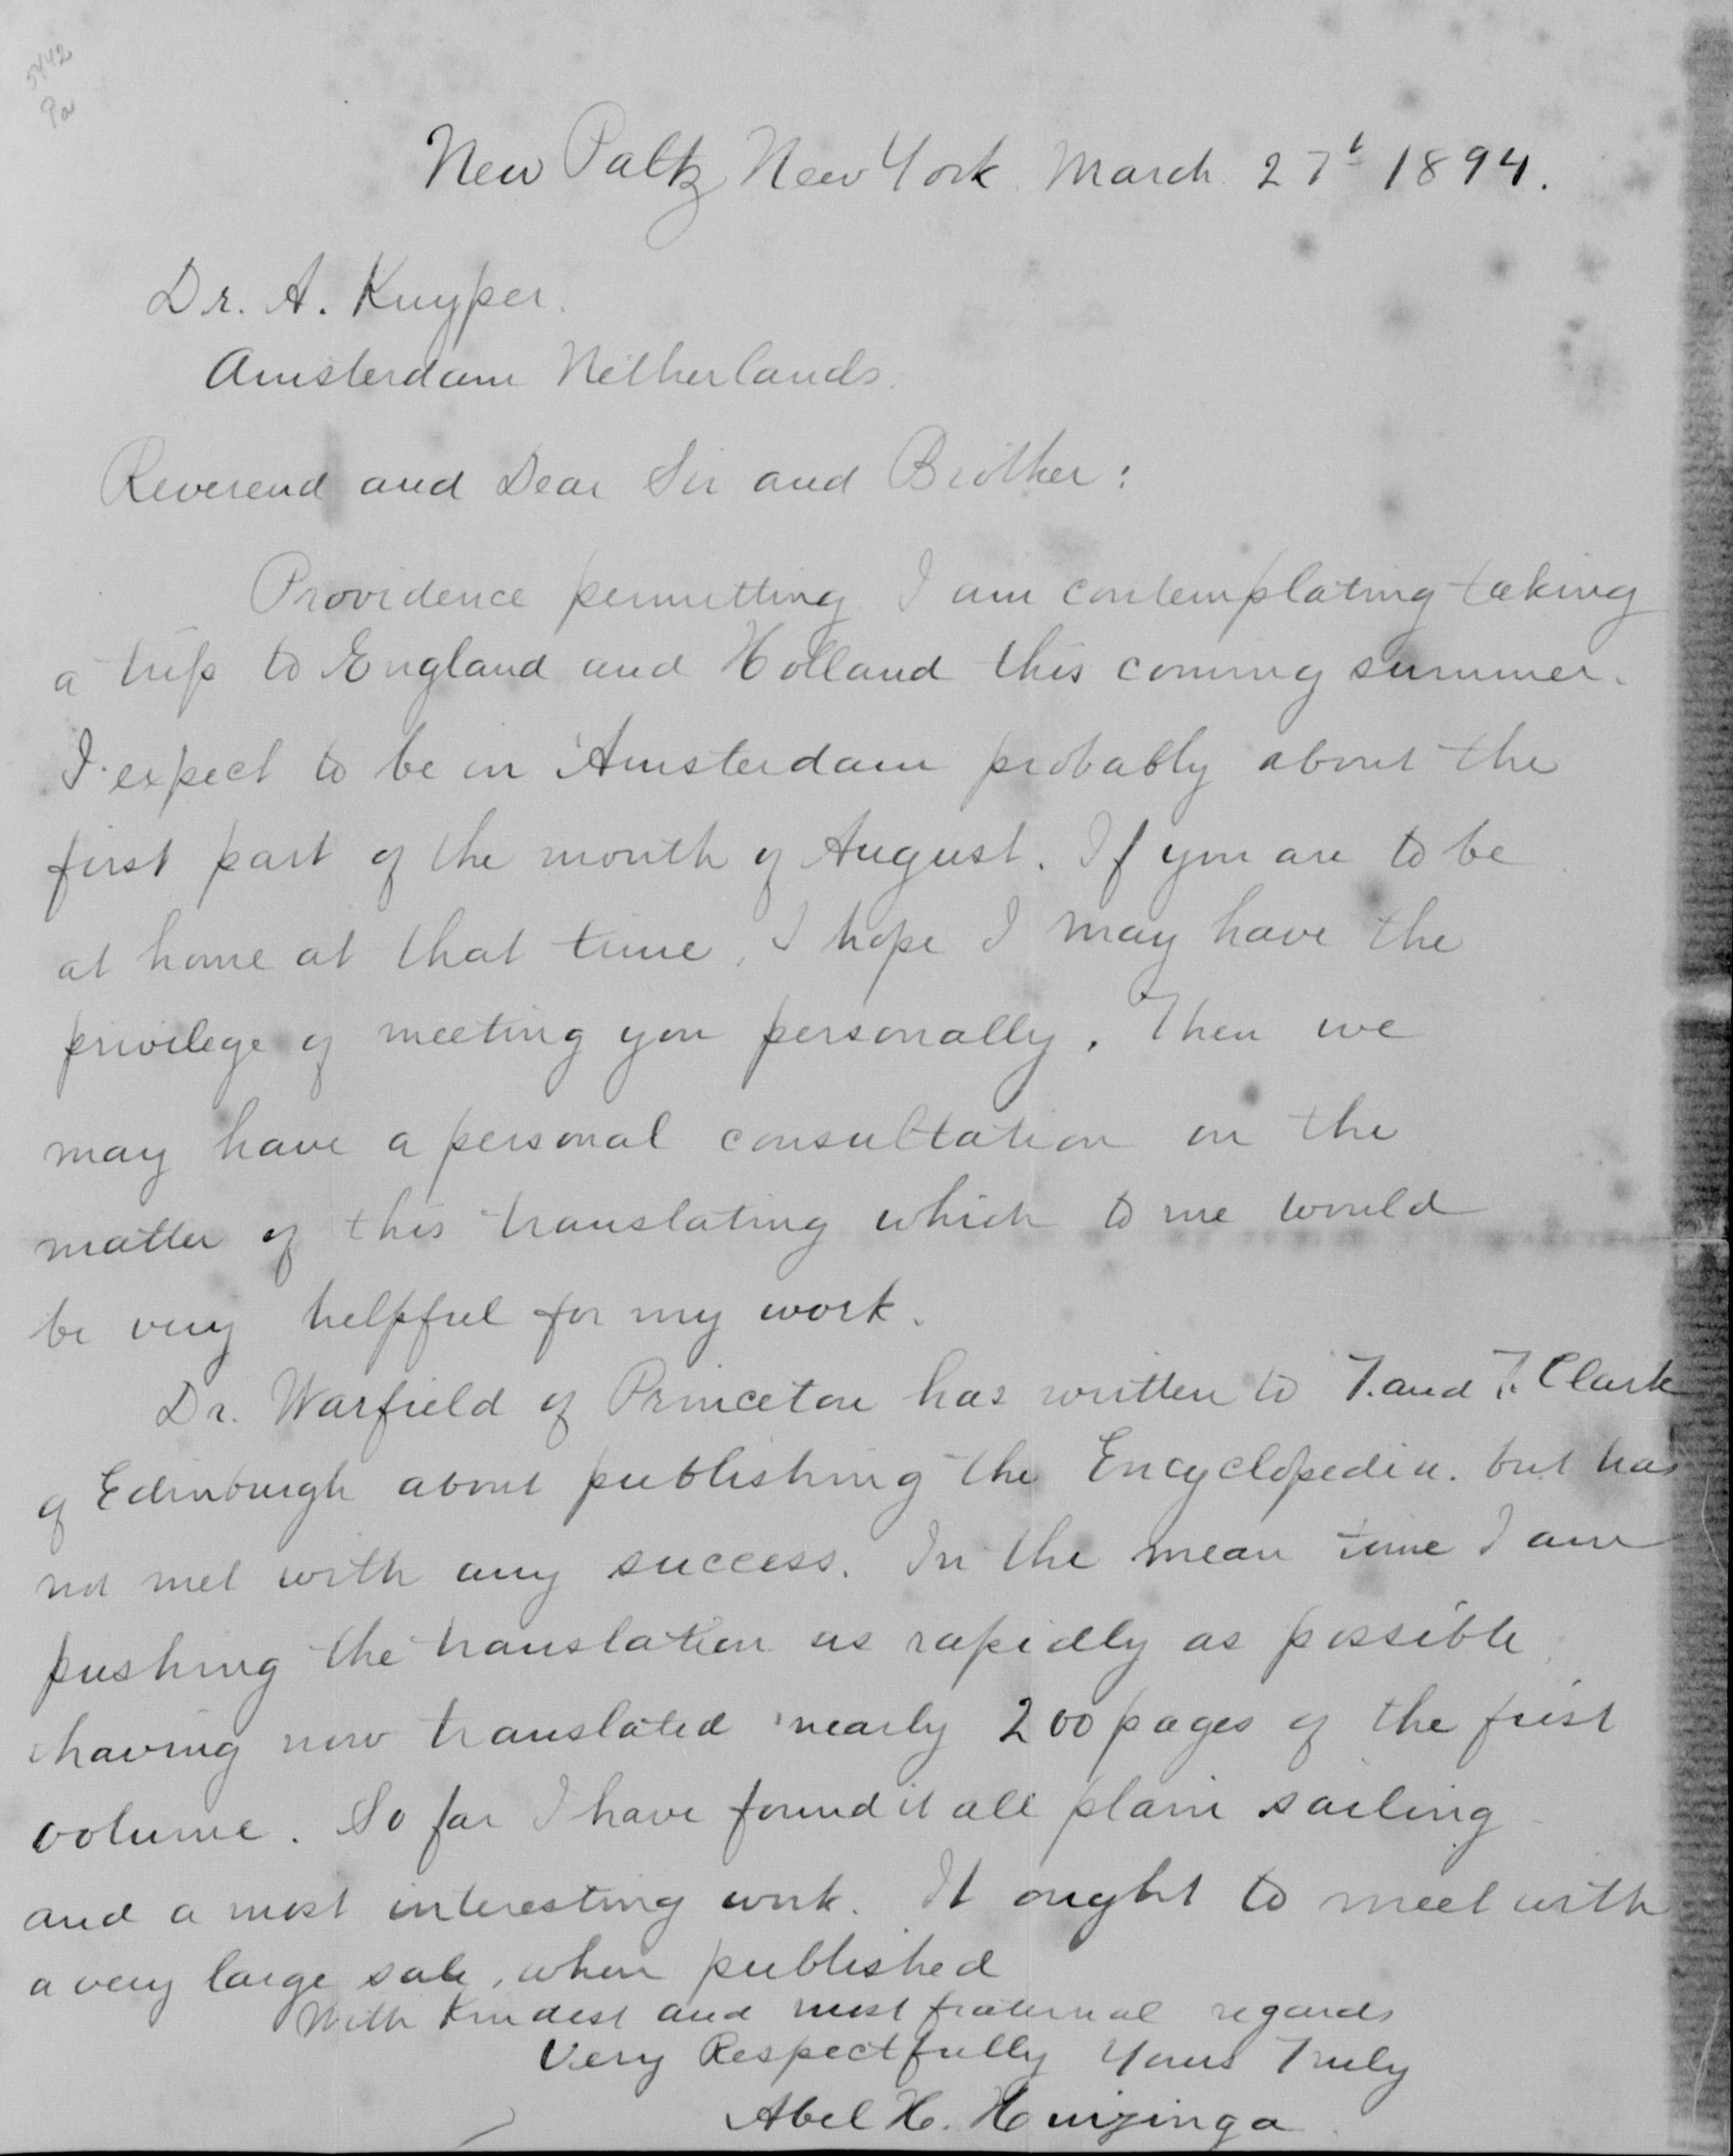 5442
New Paltz New York. March 27t 1894.
Dr. A. Kuyper.
Amsterdam Netherlands.
Reverend and Dear Sir and Brother:
Providence permitting I am contemplating taking
a trip to England and Holland this coming summer.
I expect to be in Amsterdam probably about the
first part of the month of August. If you are to be
at home at that time, I hope I may have the
privilege of meeting you personally. Then we
may have a personal consultation on the
matter of this translating which to me would
be very helpful for my work.
Dr. Warfield of Princeton has written to T. and T. Clark
of Edinburgh about publishing the Encyclopedia. but has
not met with any success. In the mean time I am
pushing the translation as rapidly as possible
having now translated nearly 200 pages of the first
volume. So far I have found it all plain sailing
and a most interesting work. It ought to meet with
a very large sale, when published
With kindest and most fraternal regards
Very Respectfully Yours Truly
Abel H. Huizinga.